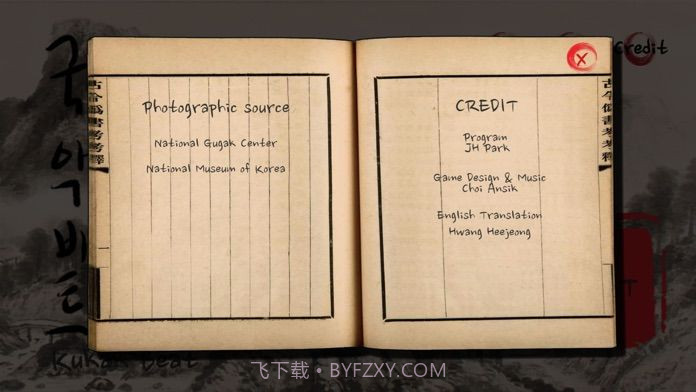 Credit
국악비트
Kukak Beat
Photographic source
National Gugak Center
National Museum of Korea
CREDIT
Program
JH Park
Game Design & Music
Choi Ansik
English Translation
Hwang Heejeong
古今僞書考考釋
古今僞書考考釋
T
飞下载·BYFZXY.COM